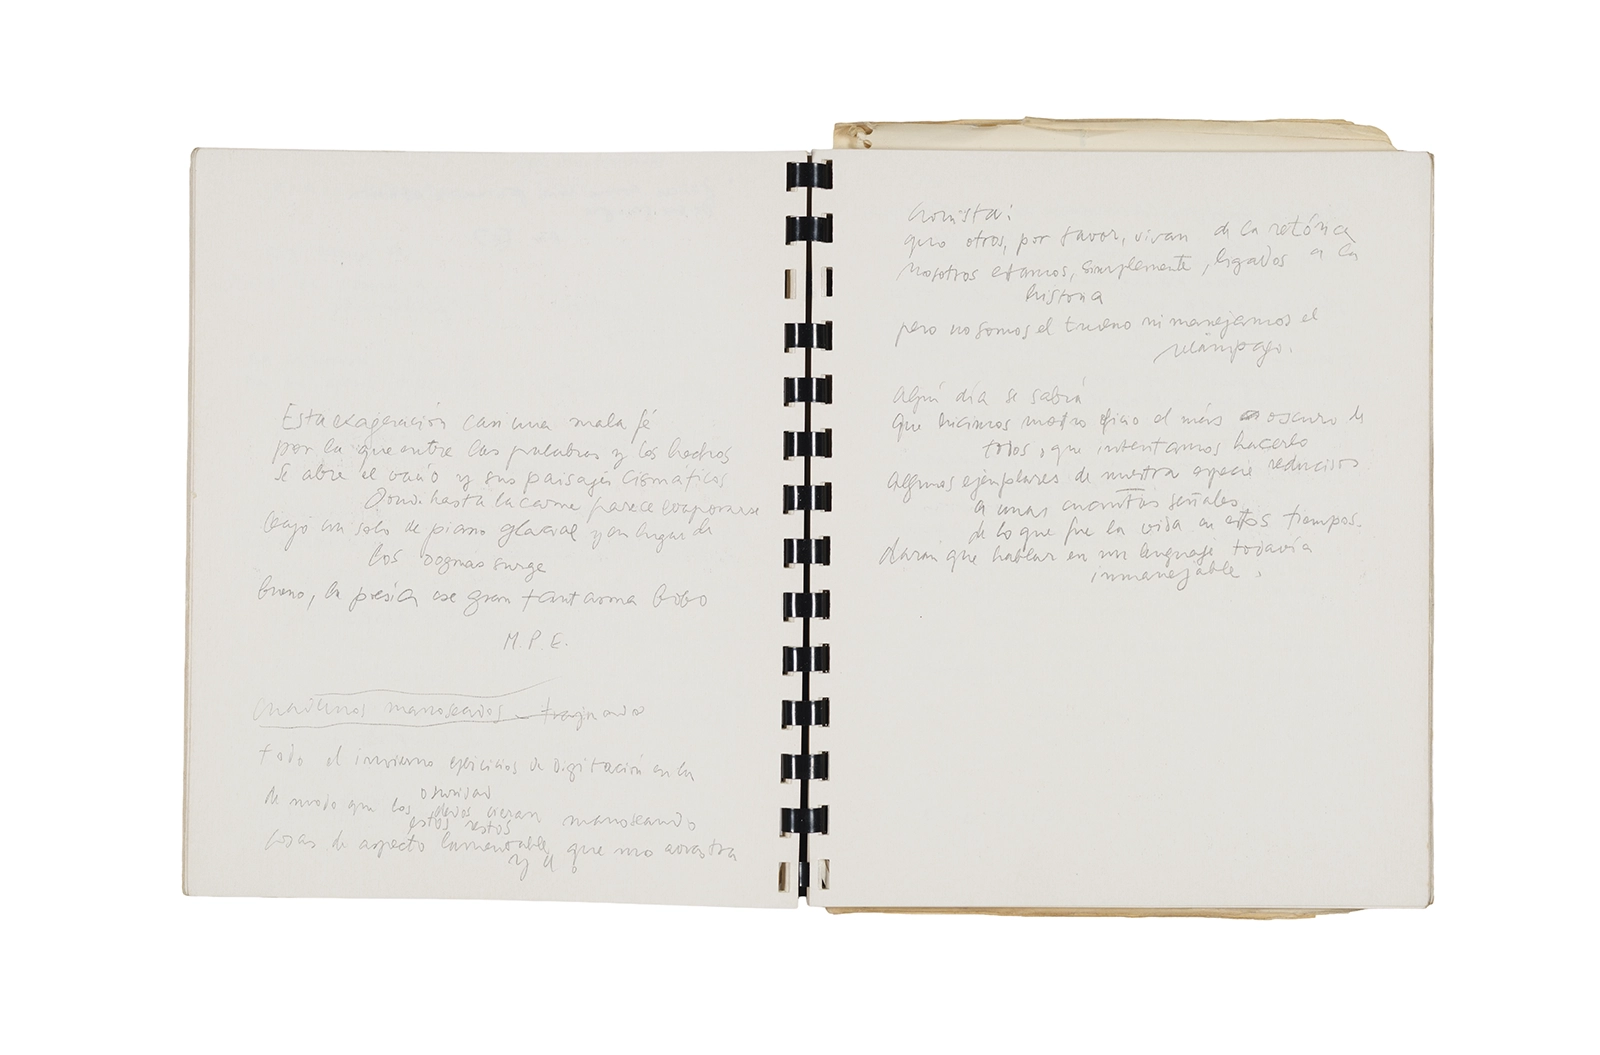 Esta exageración casi una mala fé
por la que entre las palabras y los hechos
se abre el vacío y sus paisajes cismáticos
Donde hasta la carne parece evaporarse
bajo un solo de piano glacial y en lugar de
los dogmas surge
bueno, la poesía ese gran fantasma bobo
M.P.E.
cuadernos manoseados
todo el invierno ejercicios de digitación en la
oscuridad
de modo que los dedos vieran manoseando
estos restos
cosas de aspecto lamentable que uno arrastra
y
Cronista:
que otros, por favor, vivan de la retórica
nosotros estamos, simplemente, ligados a la
historia
pero no somos el trueno ni manejamos el
relámpago.
Algún día se sabrá
que hicimos nuestro oficio el más oscuro de
todos o que intentamos hacerlo
Algunos ejemplares de nuestra especie reducidos
a unas cuantas señales
de lo que fue la vida en estos tiempos
darán que hablar en un lenguaje todavía
inmanejable.